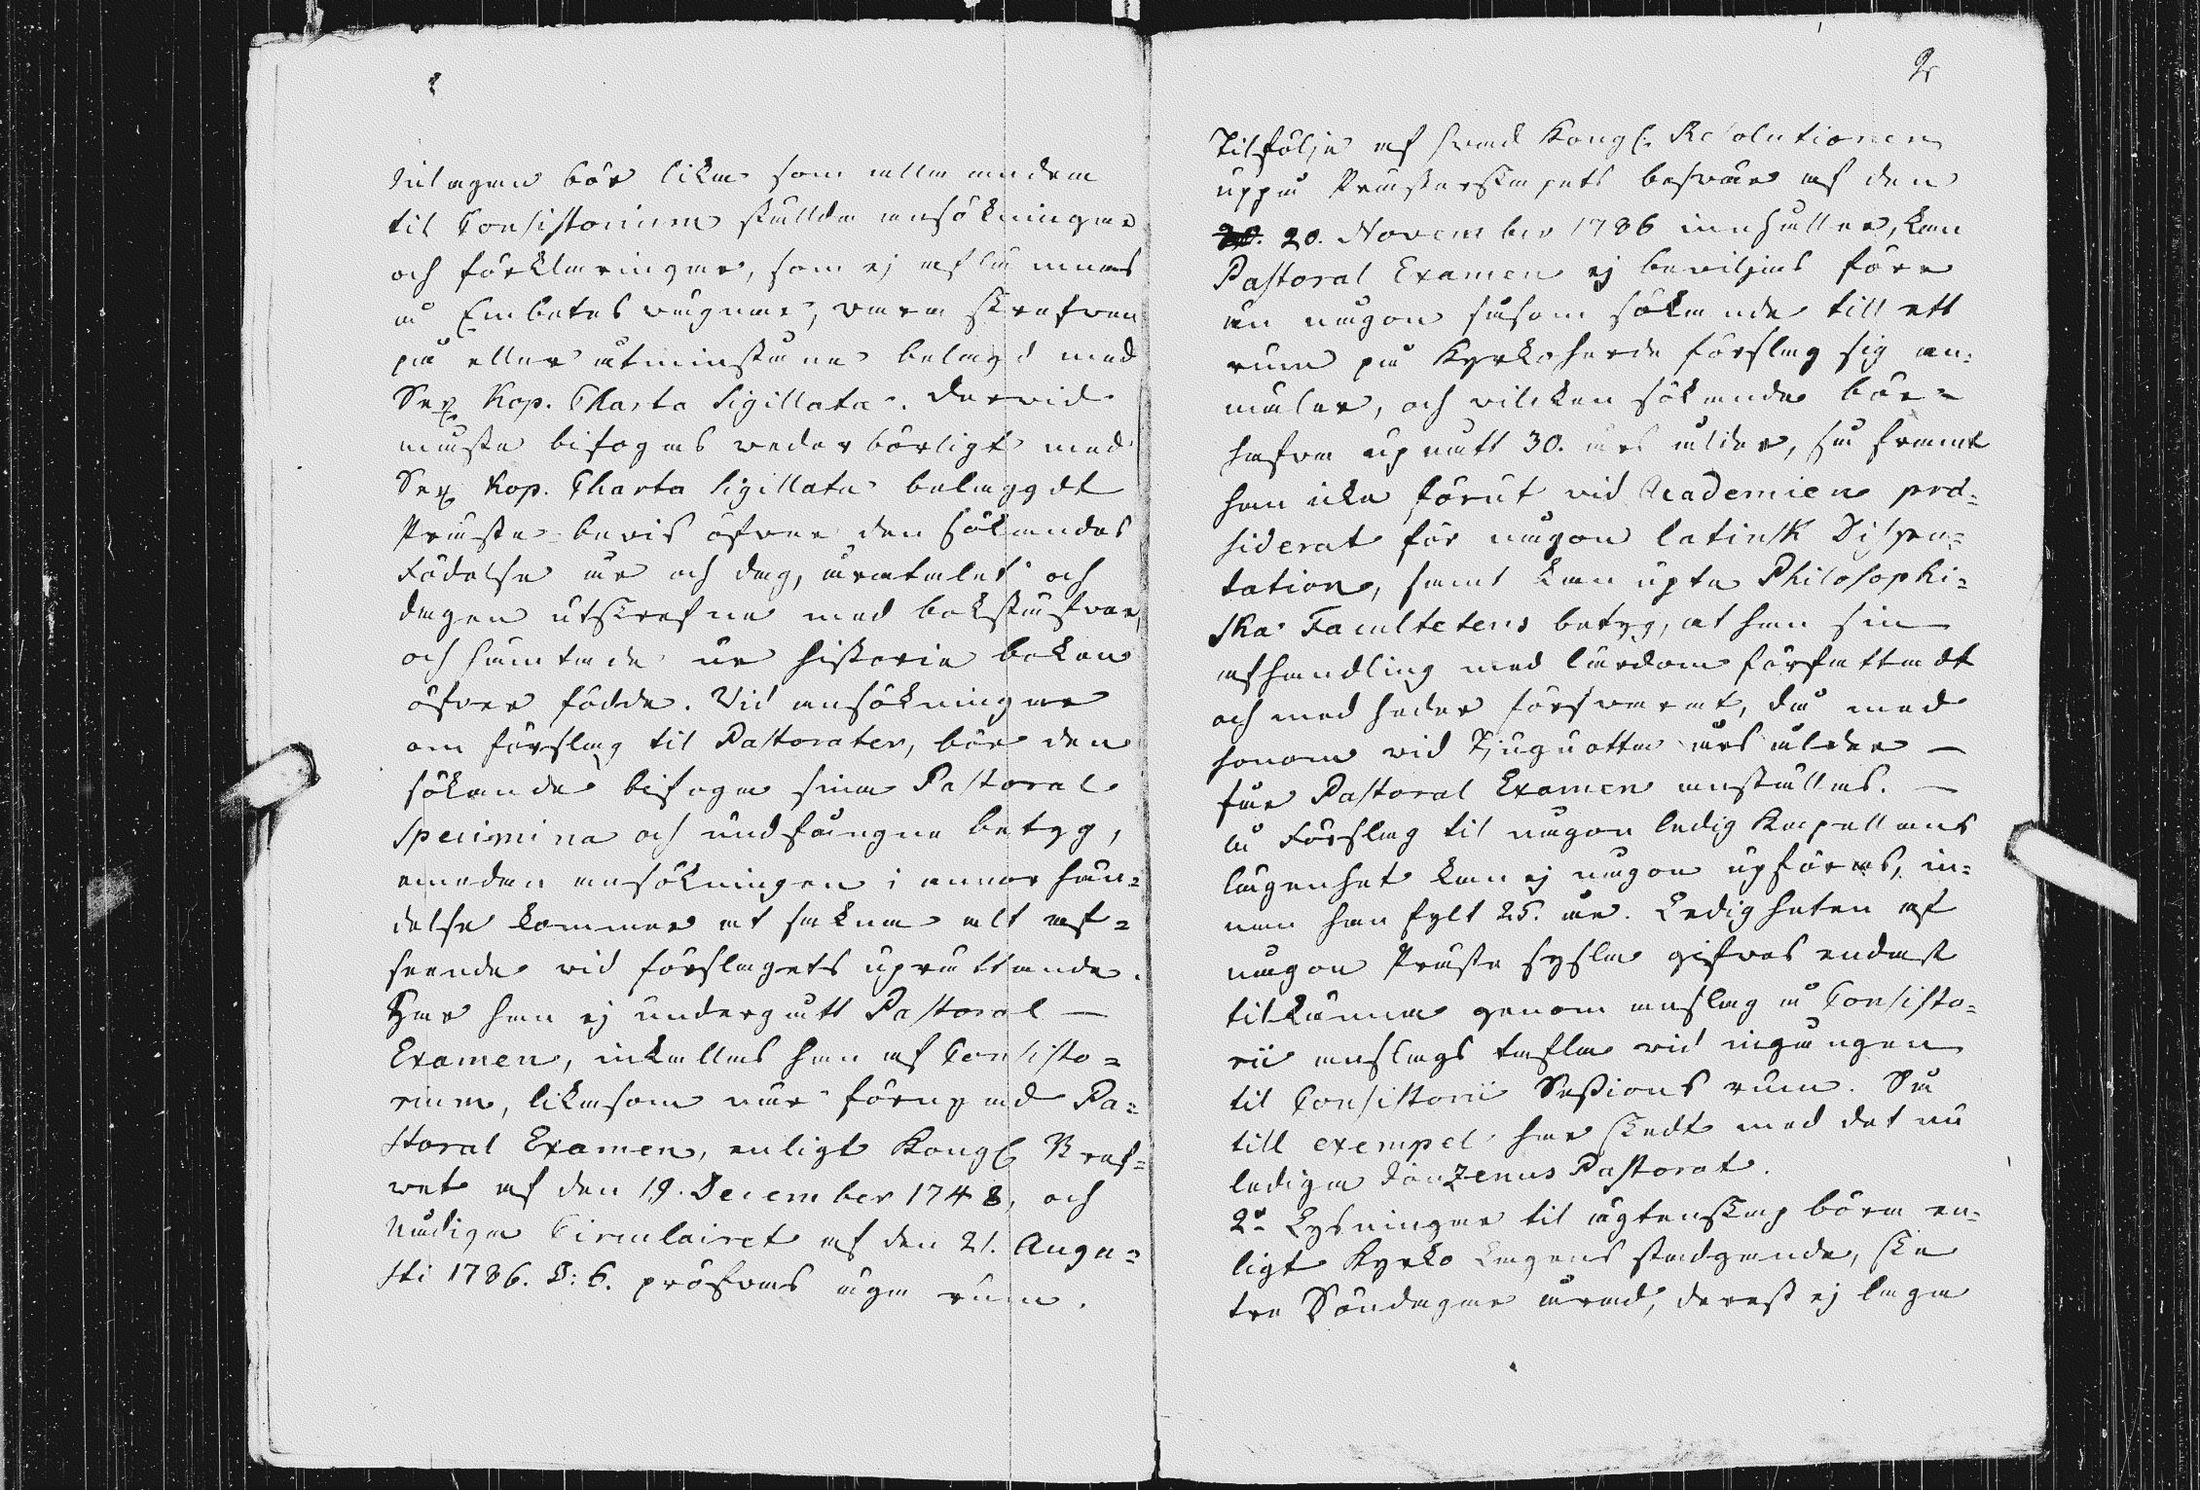 Inlagan bör lika som alla andra
til Consistorium stälda ansökningar
och förklaringar, som ej aflämnas
å Embetes vägnar, vara skrefven
på eller åtminstone belagd med
Sex Kop. Charta Sigillata. Dervid
måste bifogas vederbörligt med
Sex Kop. Charta Sigillata belaggdt
Präste-bevis öfver den sökandes
födelse år och dag, åratalet och
dagen utskrefne med bokstäfver,
och hämtade ur historie boken
öfver födde. Vid ansökningar
om förslag til Pastorater, bör den
sökande bifoga sina Pastoral
Specimina och undfångna betyg,
emedan ansökningen i annor hän=
delse kommer at sakna alt af=
seende vid förslagets uprättande.
Har han ej undergått Pastoral —
Examen, inkallas han af Consisto=
rium, likasom när förnyad Pa=
storal Examen, enligt Kongl Bref=
vet af den 19. December 1748, och
Nådiga Circulairet af den 21. Augu=
sti 1786. §: 6. pröfvas äga rum.
2
Tilfölje af hvad Kongl. Resolutionen
uppå Prästerskapets besvär af den
20. November 1786 innehåller, kan
Pastoral Examen ej beviljas förr
än någon såsom sökande till ett
rum på Kyrkoherde förslag sig an=
mäler, och vilcken sökande bör=
hafva upnått 30. års ålder, så framt
han icke förut vid Academien præ=
siderat för någon latinsk Dispu=
tation, samt kan upte Philosophi=
ska Facultetens betyg, at han sin
afhandling med lärdom författadt
och med heder försvarat, då med
honom vid Tjuguotta års ålder —
får Pastoral Examen anställas. —
Å Förslag til någon ledig Kapellans
lägenhet kan ej någon upföras, in=
nan han fylt 25. år. Ledigheten af
någon Präste sysla gifves endast
tilkänna genom anslag å Consisto=
rii anslags tafla vid ingången
til Consistorii Sessions rum. Så
till exempel har skedt med det nu
lediga Pastorat.
2:o Lysningar til ägtenskap böra en=
ligt Kyrko Lagens stadgande, ske
tre Söndagar å rad, derest ej laga